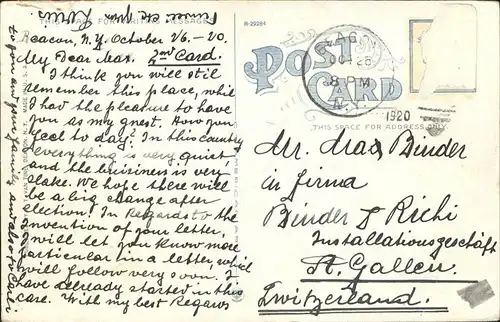 THIS SPACE FOR WRITING MESSAGES
Beacon, N.Y. October 26.-20.
My Dear Max. 2nd Card.
I think you will still
remember this place, while
I had the pleasure to have
you as my guest. How you
feel to day? In this country
everything is very quiet
and the buisiness is very
slake. We hope there will
be a big change after
election. In Regards to the
invention of your letter,
will let you know more
particular in a letter, which
will follow very soon. I
have already started in this
care. With my best Regards
to you and your family and also to
from
R-29284
POST CARD
OCT 26
8 PM
N.Y.
1920
THIS SPACE FOR ADDRESS ONLY
Mr. Max Binder
in firma
Binder & Richi
Installationsgeschäft
St. Gallen.
Switzerland.